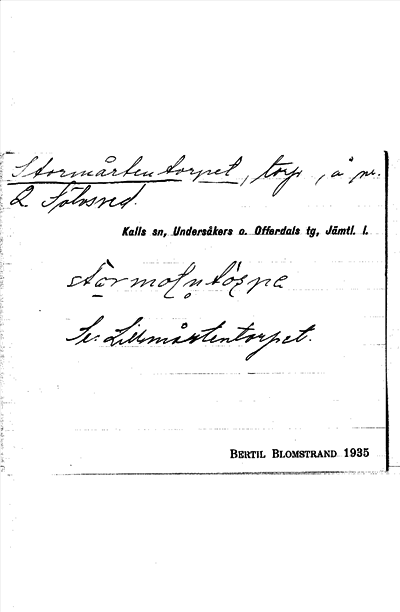 Stormårtentorpet, torp, å nr.
2 Sölvsved.
Kalls sn, Undersåkers o. Offerdals tg, Jämtl. l.
Se: Lillmårtentorpet.
BERTIL BLOMSTRAND 1935